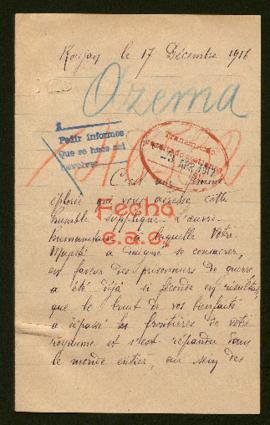 Royan le 17 Décembre 1916
Ozema
Pedir informes
Que se hace así
C'est une femme
éplorée qui vous adresse cette
humble supplique. L'œuvre
humanitaire à laquelle Votre
Majesté a daigné se consacrer,
en faveur des prisonniers de guerre
a été déjà si féconde en résultats,
Fecho
que le bruit de vos bienfaits
a dépassé les frontières de votre
royaume et s'est répandu dans
le monde entier, au sein des